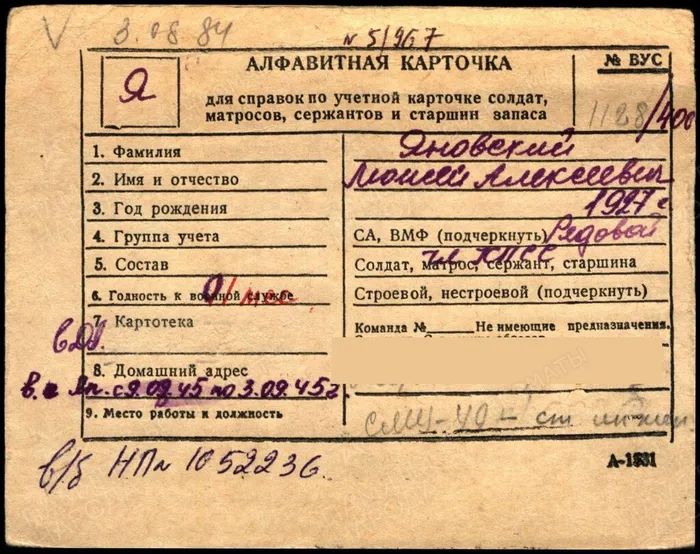 V 3.08.84
№ 5/967
Я
АЛФАВИТНАЯ КАРТОЧКА
для справок по учетной карточке солдат,
матросов, сержантов и старшин запаса
№ ВУС
1128/400
1. Фамилия Яновский
2. Имя и отчество Моисей Алексеевич
3. Год рождения 1927 г
4. Группа учета СА, ВМФ (подчеркнуть) Рядовой
5. Состав Солдат, матрос, сержант, старшина
чл КПСС
6. Годность к военной службе Строевой, нестроевой (подчеркнуть)
7. Картотека Команда № Не имеющие предназначения.
8. Домашний адрес
с 9.08.45 по 3.09.45 г
9. Место работы и должность СМУ-40 - ст инжен
в/б НП № 1052236.
А-1331